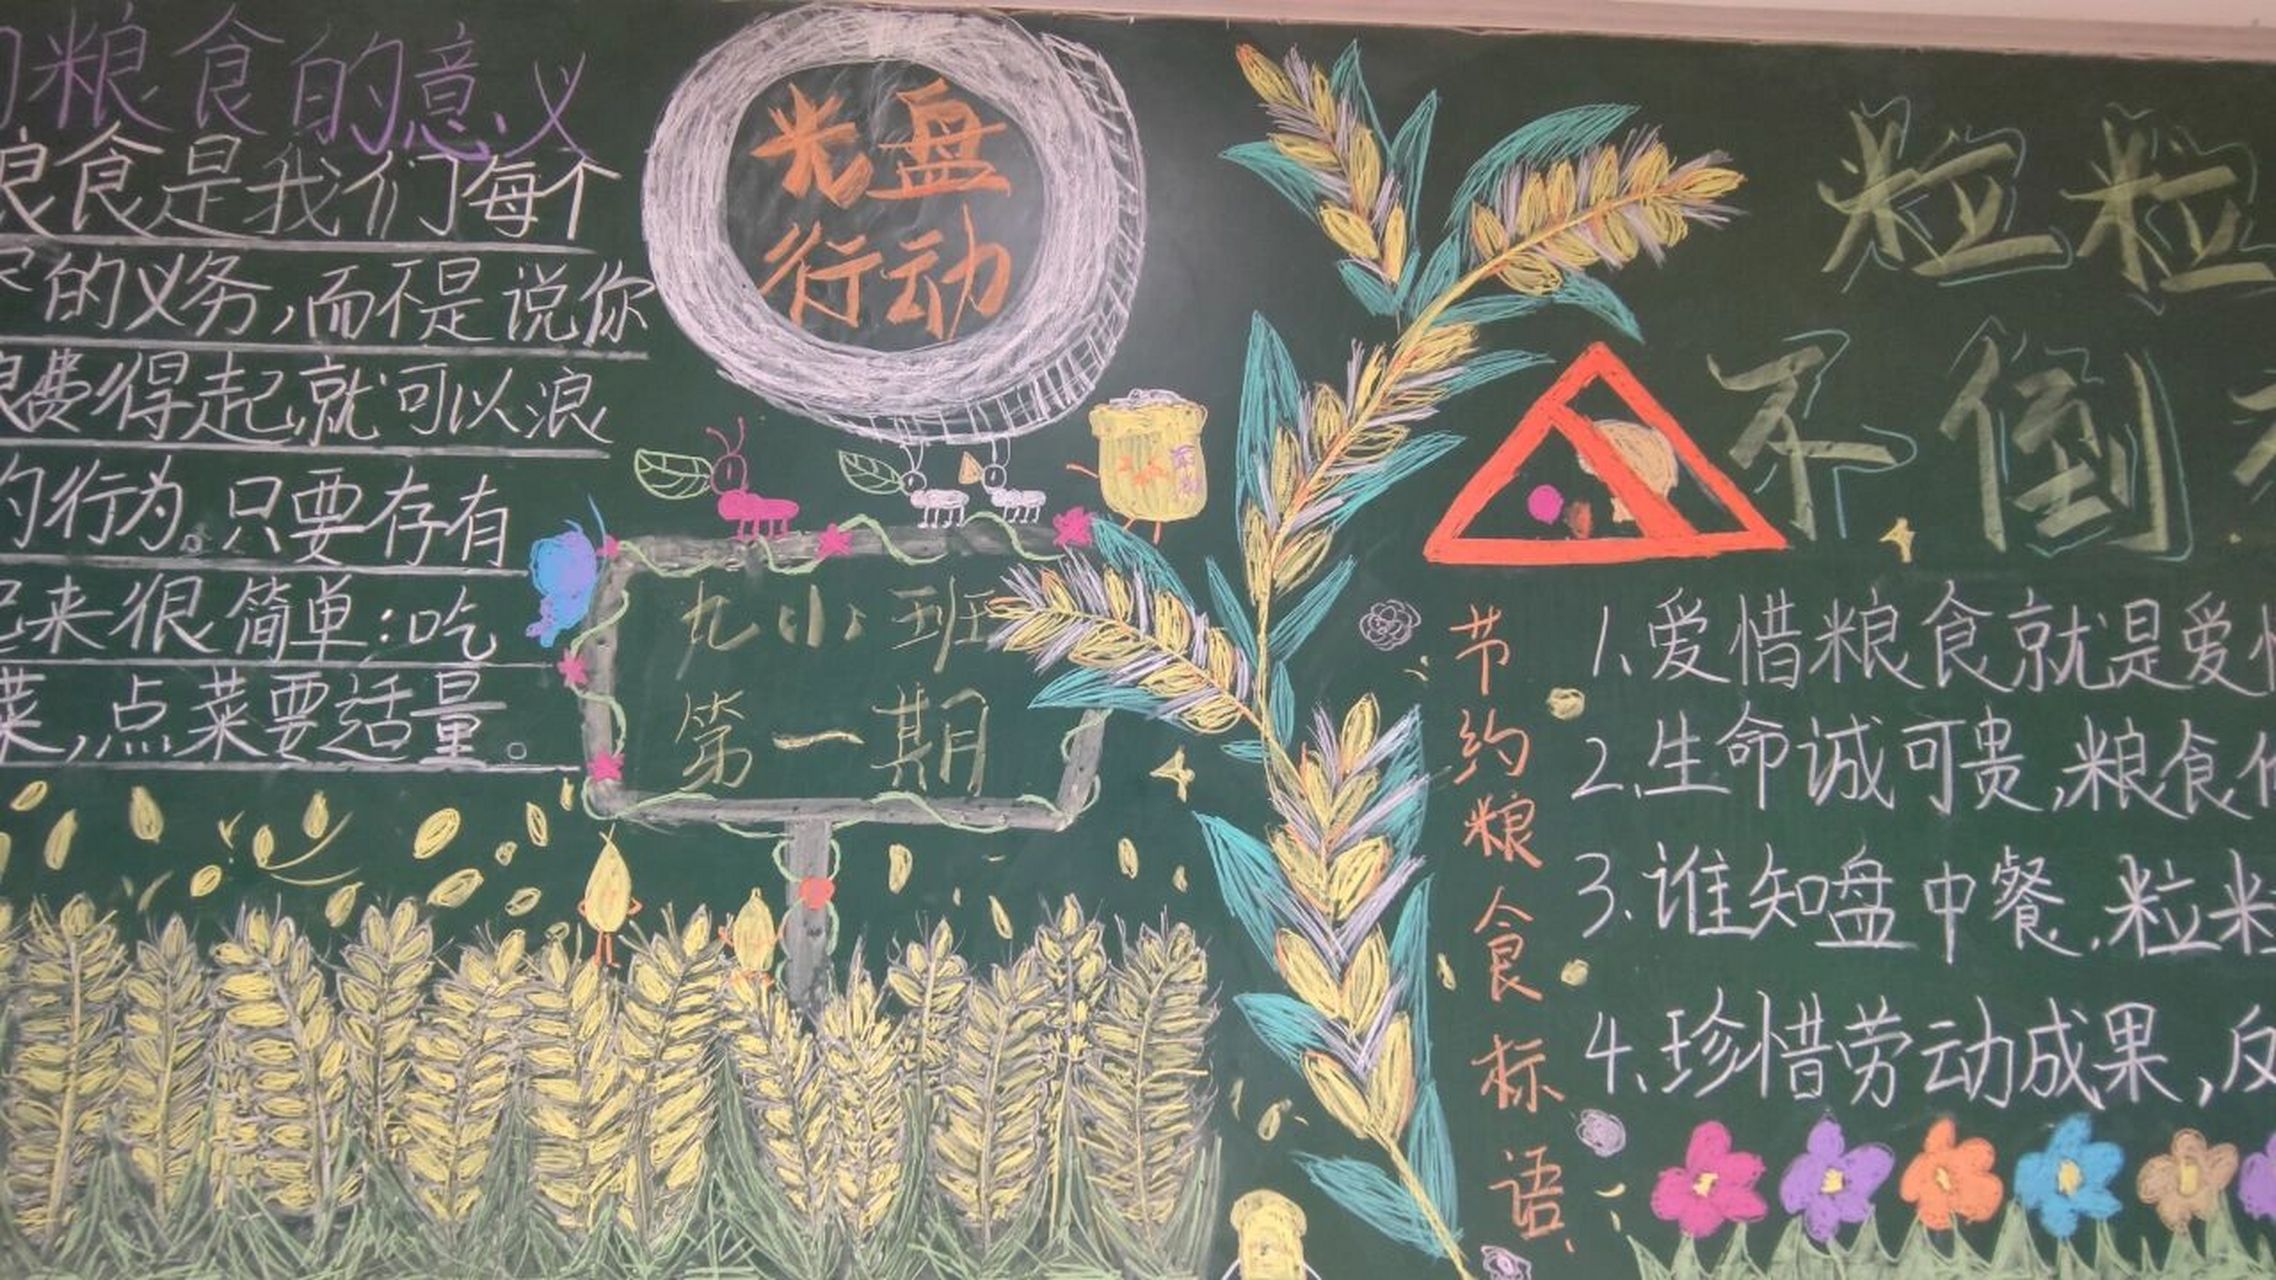 约粮食的意义
粮食是我们每个
的义务,而不是说你
浪费得起,就可以浪
的行为。只要存有
起来很简单:吃
菜,点菜要适量。
光盘
行动
九小班
第一期
粒粒
不倒
节约粮食标语
1.爱惜粮食就是爱惜
2.生命诚可贵,粮食
3.谁知盘中餐.粒粒
4.珍惜劳动成果,反